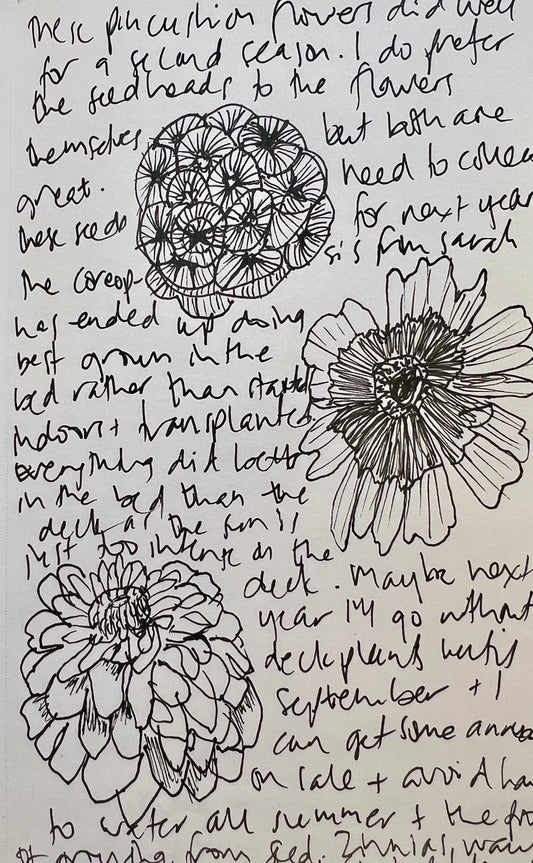 These pincushion flowers did well
for a second season. I do prefer
the seedheads to the flowers
themselves, but both are
great. need to collect
these seeds for next year
the coreop- sis from sarah
has ended up doing
best grown in the
bed rather than started
indoors + transplanted.
everything did better
in the bed than the
deck as the sun is
just too intense on the
deck. Maybe next
year I'll go without
deck plants until
September + I
can get some annua
on sale + avoid ha
to water all summer + the fr
of growing from seed. Zinnias,